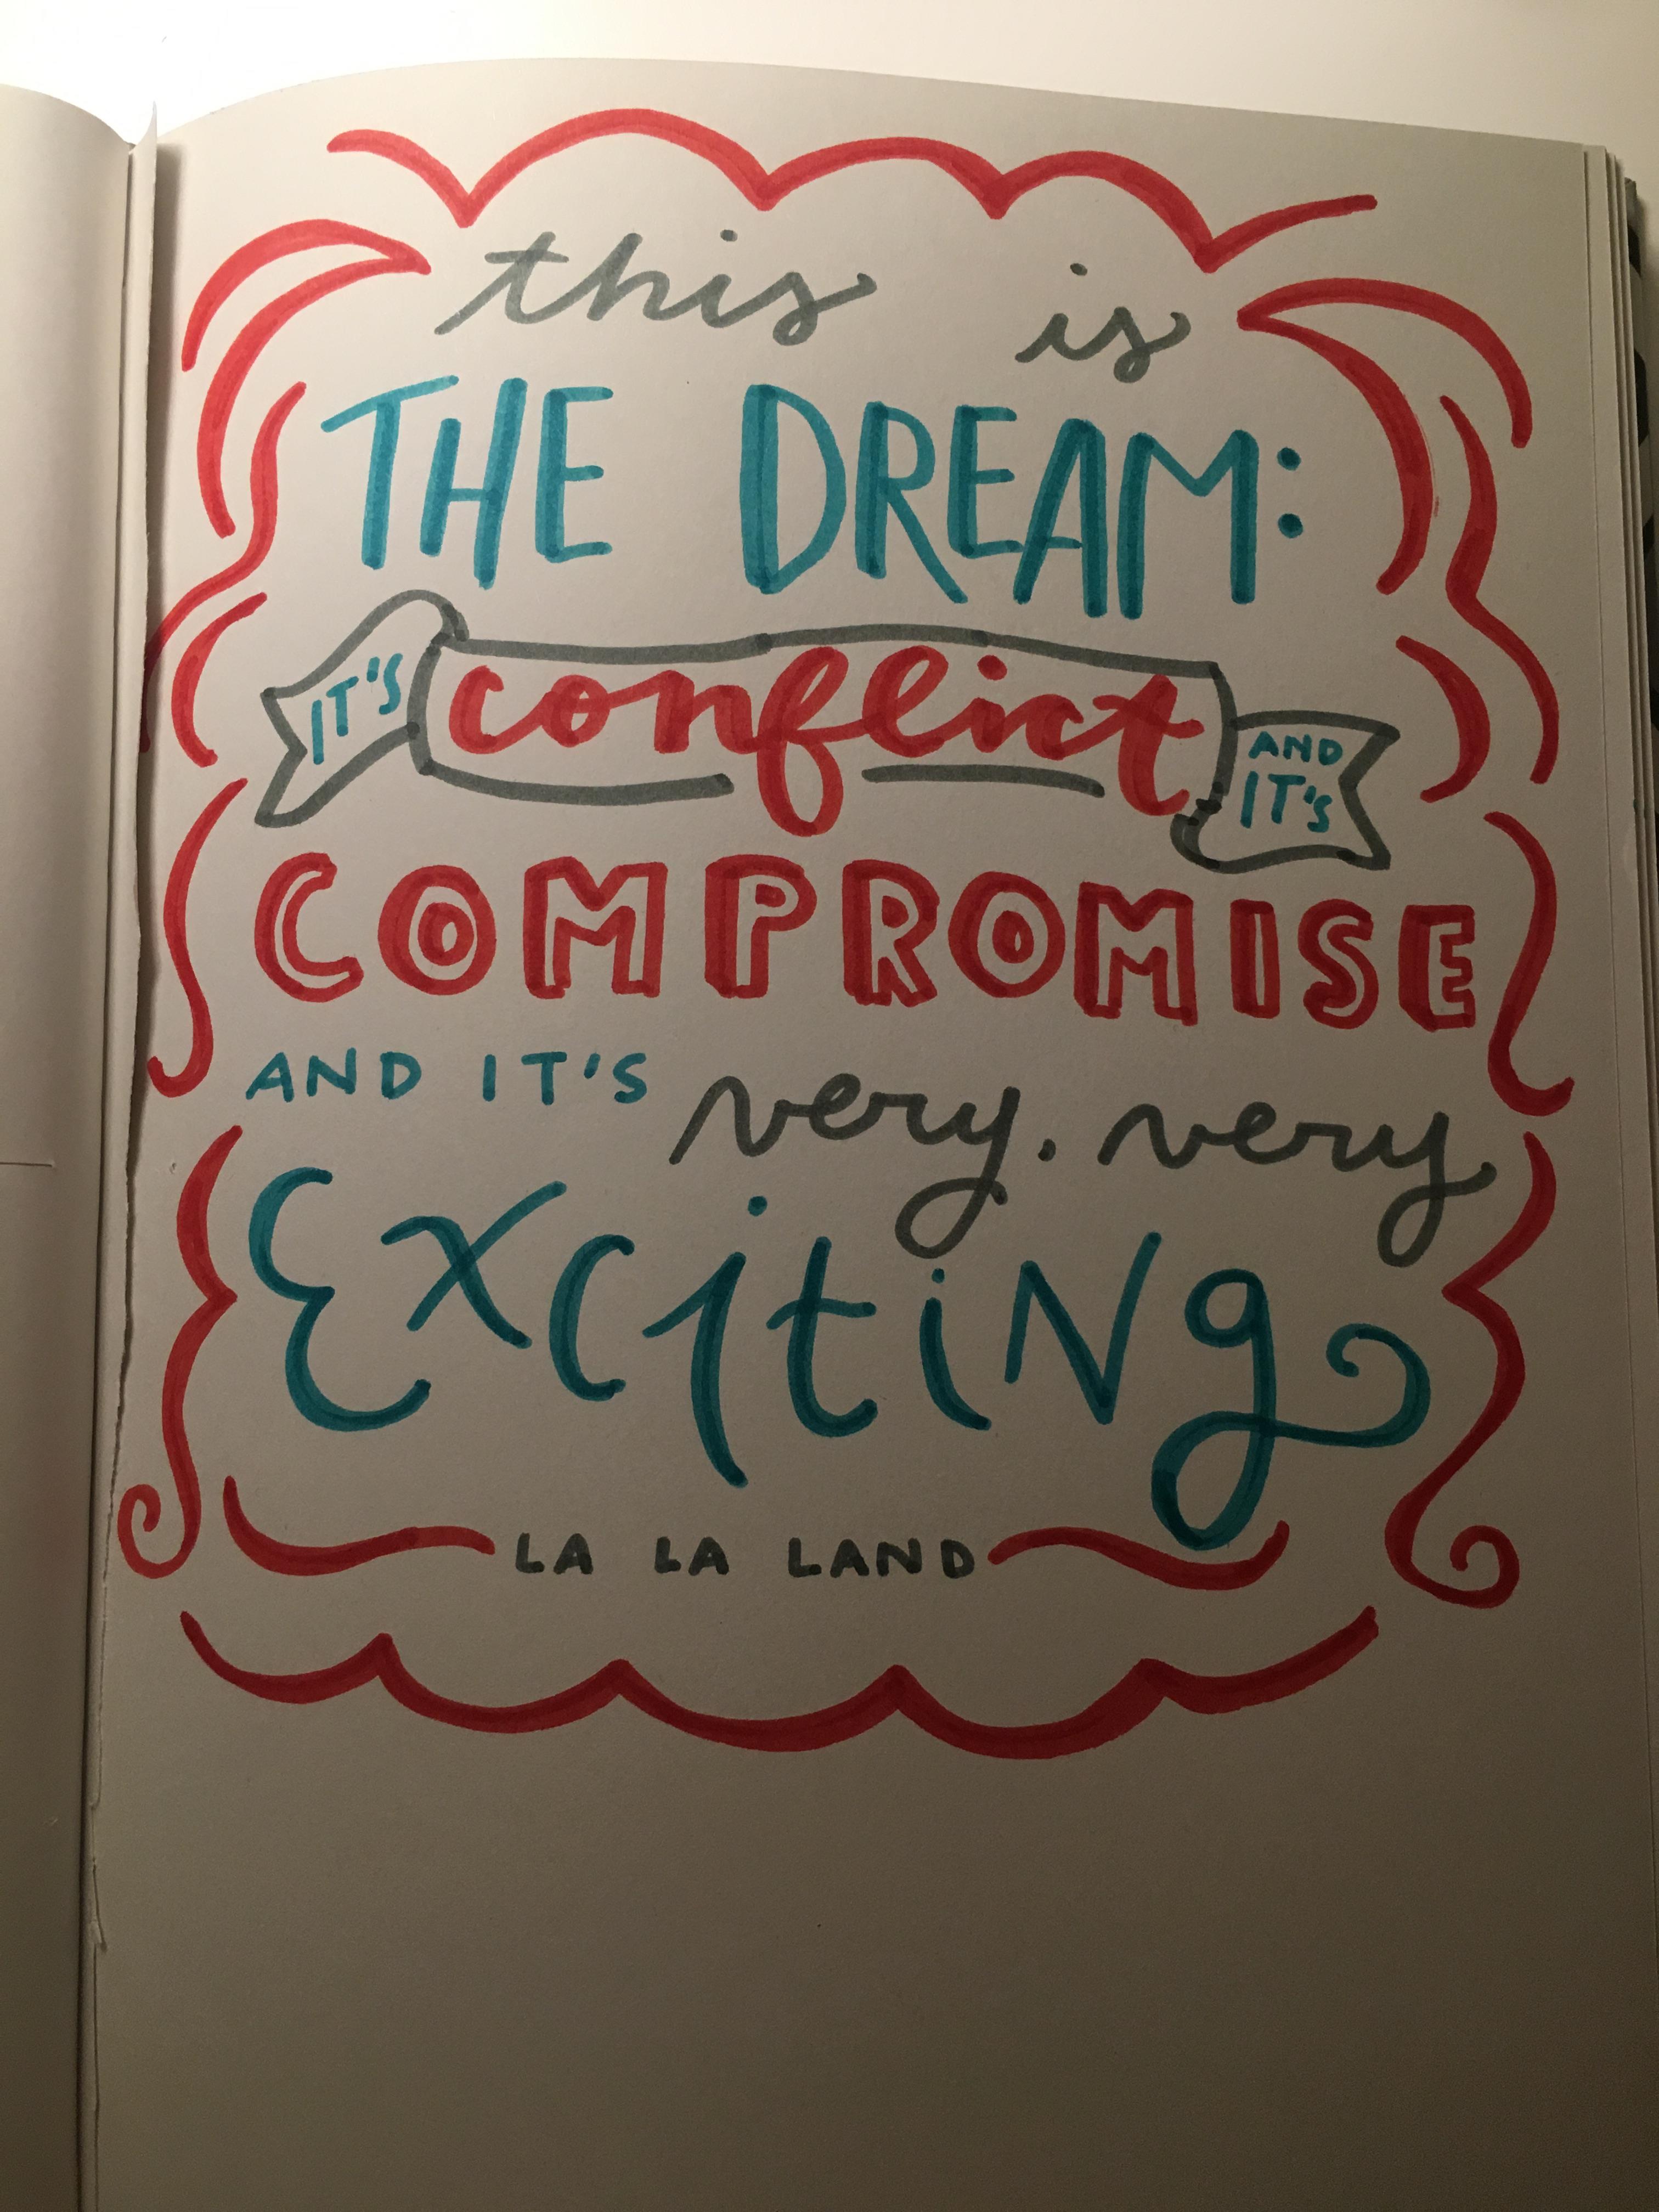 this is
THE DREAM:
IT'S conflict AND IT'S
COMPROMISE
AND IT'S very, very
ExciTiNg
LA LA LAND